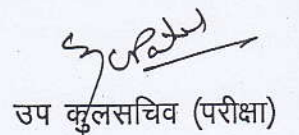 उप कुलसचिव (परीक्षा)